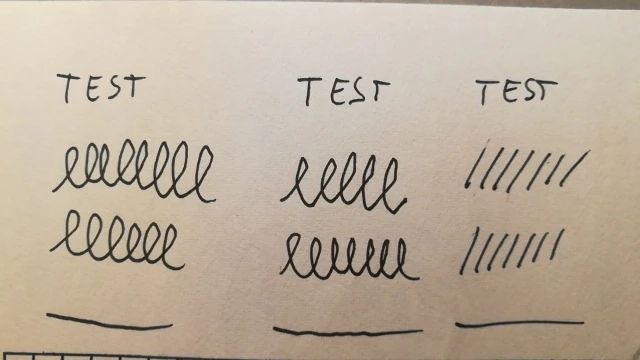 TEST TEST TEST